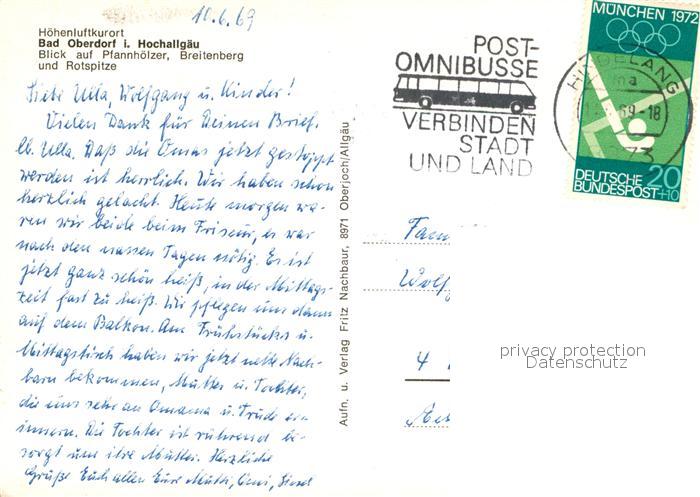 10.6.69
Höhenluftkurort
Bad Oberdorf i. Hochallgäu
Blick auf Pfannhölzer, Breitenberg
und Rotspitze
Liebe Ulla, Wolfgang u. Kinder!
Vielen Dank für Deinen Brief,
lb. Ulla. Daß die Omas jetzt gestoppt
werden ist herrlich. Wir haben schon
herzlich gelacht. Heute morgen wa-
ren wir beide beim Friseur, es war
nach den nassen Tagen nötig. Es ist
jetzt ganz schön heiß, in der Mittags-
zeit fast zu heiß. Wir pflegen uns dann
auf dem Balkon. Am Frühstücks u.
Mittagstisch haben wir jetzt nette Nach-
barn bekommen, Mutter u. Tochter,
die uns sehr an Omama u. Trude er-
innern. Die Tochter ist rührend be-
sorgt um ihre Mutter. Herzliche
Grüße Euch allen Eure Mutti, Omi,
Aufn. u. Verlag Fritz Nachbaur, 8971 Oberjoch/Allgäu
POST-
OMNIBUSSE
VERBINDEN
STADT
UND LAND
HINDELANG
69-18
73
MÜNCHEN 1972
DEUTSCHE
BUNDESPOST
20
+10
Fam
Wolfg
4
privacy protection
Datenschutz